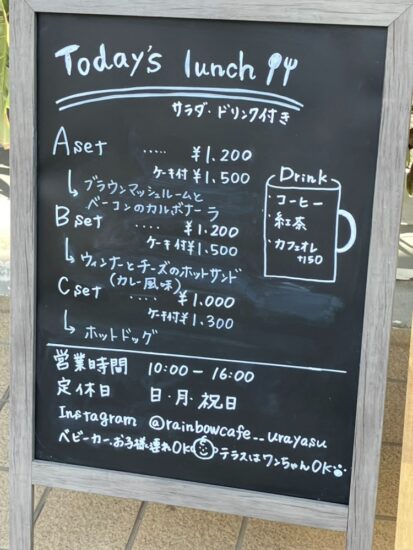 Today's lunch
サラダ・ドリンク付き
A set ..... ¥1,200
ケーキ付 ¥1,500
ブラウンマッシュルームと
ベーコンのカルボナーラ
B set ..... ¥1,200
ケーキ付 ¥1,500
ウィンナーとチーズのホットサンド
(カレー風味)
C set ..... ¥1,000
ケーキ付 ¥1,300
ホットドッグ
Drink
・コーヒー
・紅茶
・カフェオレ
+150
営業時間 10:00 - 16:00
定休日 日・月・祝日
Instagram @rainbowcafe__urayasu
ベビーカー・お子様連れOK テラスはワンちゃんOK